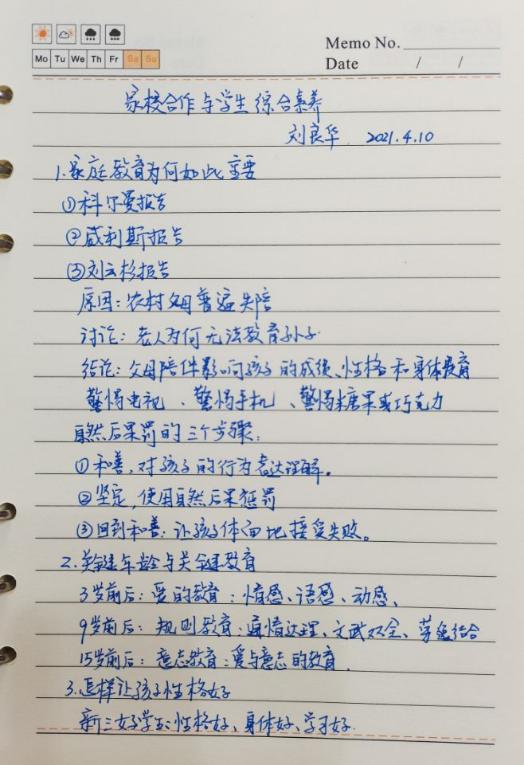 Memo No.
Mo Tu We Th Fr Sa Su
Date / /
家校合作与学生综合素养
刘良华 2021.4.10
1.家庭教育为何如此重要
①科尔曼报告
②威利斯报告
③刘云杉报告
原因:农村父母普遍失陪
讨论:老人为何无法教育孙子
结论:父母陪伴影响孩子的成绩、性格和身体发育
警惕电视、警惕手机、警惕糖果或巧克力
自然后果罚的三个步骤:
①和善,对孩子的行为表达理解。
②坚定,使用自然后果惩罚
③回到和善:让孩子体面地接受失败。
2.关键年龄与关键教育
3岁前后:爱的教育:情感、语感、动感、
9岁前后:规则教育:通情达理、文武双全、劳逸结合
15岁前后:意志教育:爱与意志的教育.
3.怎样让孩子性格好
新三好学生:性格好、身体好、学习好.